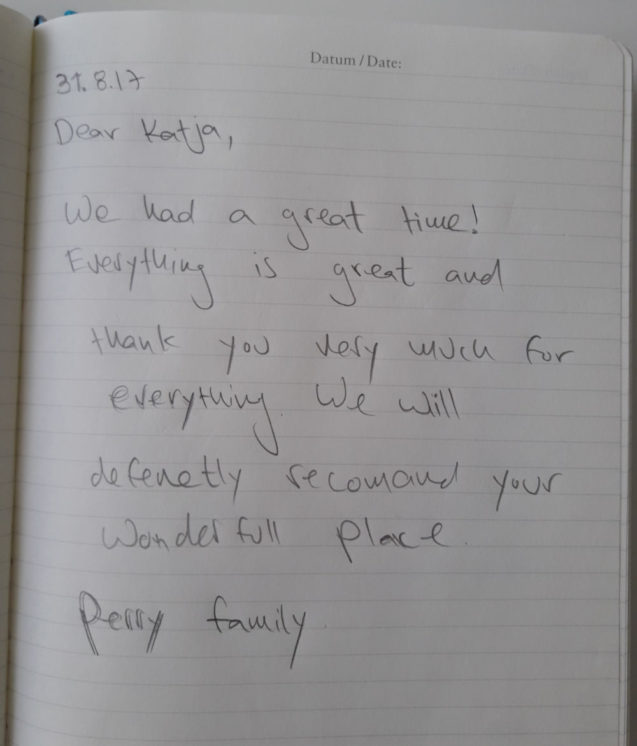 Datum / Date:
31.8.17
Dear Katja,
We had a great time!
Everything is great and
thank you very much for
everything. We will
defenetly recomand your
wonderfull place.
Perry family